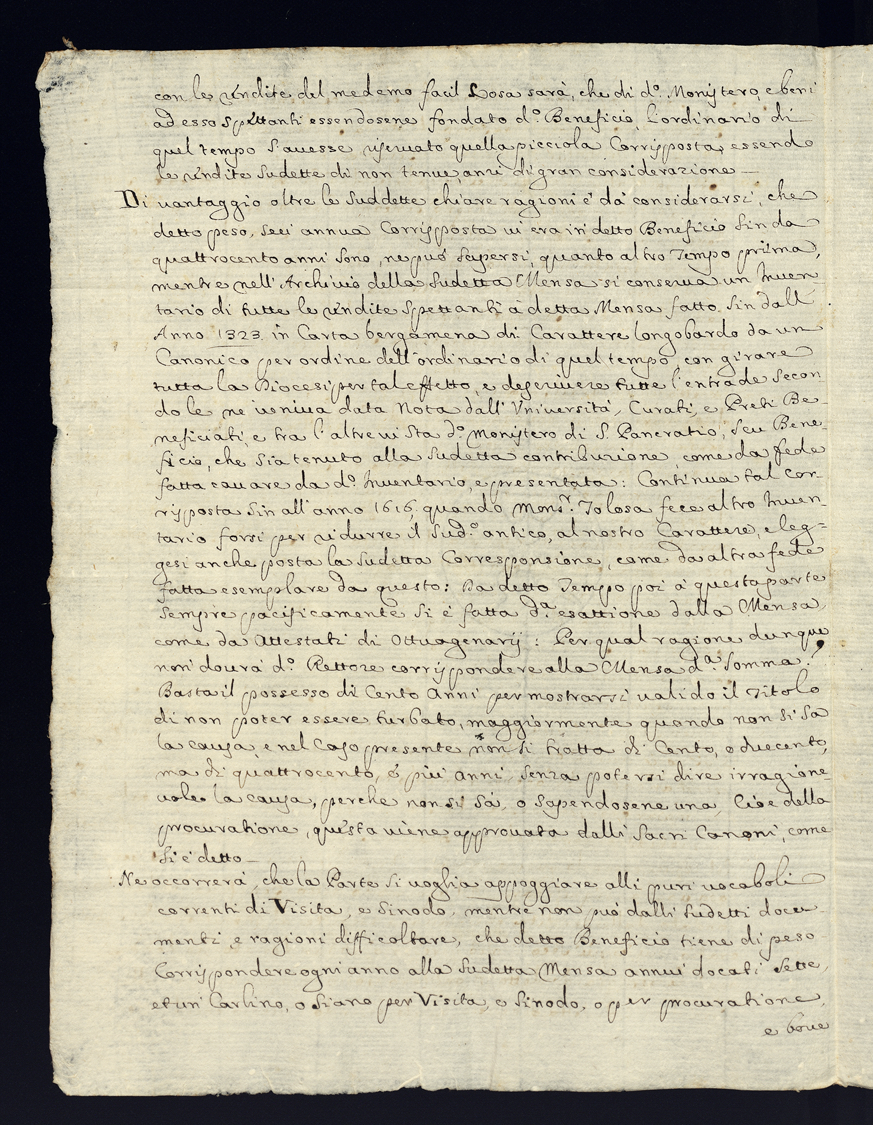 con le rendite del medemo facil Cosa sarà, che di d.º Monistero, e beni
ad esso spettanti essendosene fondato d.º Beneficio, l'ordinario di
quel tempo s'avesse riservato quella picciola Corrisposta, essendo
le rendite sudette di non tenue, anzi di gran considerazione —
Di vantaggio oltre le suddette chiare ragioni è da considerarsi, che
detto peso, seu annua Corrisposta vi era in detto Beneficio sin da
quattrocento anni sono, ne può sapersi, quanto altro Tempo prima,
mentre nell'Archivio della sudetta Mensa si conserva un Inven-
tario di tutte le rendite spettanti à detta Mensa fatto sin dall'
Anno 1323. in Carta bergamena di Carattere longobardo da un
Canonico per ordine dell'ordinario di quel tempo, con girare
tutta la Diocesi per tal effetto, e descrivere tutte l'entrade secon
do le ne veniva data Nota dall'Vniversità, Curati, e Preti Be-
neficiati, e tra l'altre vi sta d.º Monistero di S. Pancratio, seu Bene-
ficio, che sia tenuto alla sudetta contribuzione, come da fede
fatta cavare da d.º Inventario, e presentata: Continua tal Cor-
risposta sin all'anno 1616, quando Mons.r Tolosa fece altro Inven-
tario forsi per ridurre il sud.º antico, al nostro Carattere, e leg-
gesi anche posta la sudetta Corresponsione, come da altra fede
fatta esemplare da questo: Da detto Tempo poi à questa parte
sempre pacificamente si è fatta d.ª esattione dalla Mensa,
come da Attestati di Ottuagenarij: Per qual ragione dunque
non dovrà d.º Rettore corrispondere alla Mensa d.ª Somma?
Basta il possesso di Cento Anni per mostrarsi valido il Titolo
di non poter essere turbato, maggiormente quando non si sà
la causa, e nel Caso presente non si tratta di Cento, o duecento,
ma di quattrocento, e più anni, senza potersi dire irragione-
vole la causa, perche non si sà, o sapendosene una, Cioè della
procuratione, questa viene approvata dalli Sacri Canoni, come
si è detto —
Ne occorrerà, che la Parte si voglia appoggiare alli puri vocaboli
correnti di Visita, e Sinodo, mentre non può dalli sudetti docu-
menti, e ragioni difficoltare, che detto Beneficio tiene di peso
Corrispondere ogni anno alla sudetta Mensa annui docati sette,
et un Carlino, o siano per Visita, e Sinodo, o per procuratione,
e bove